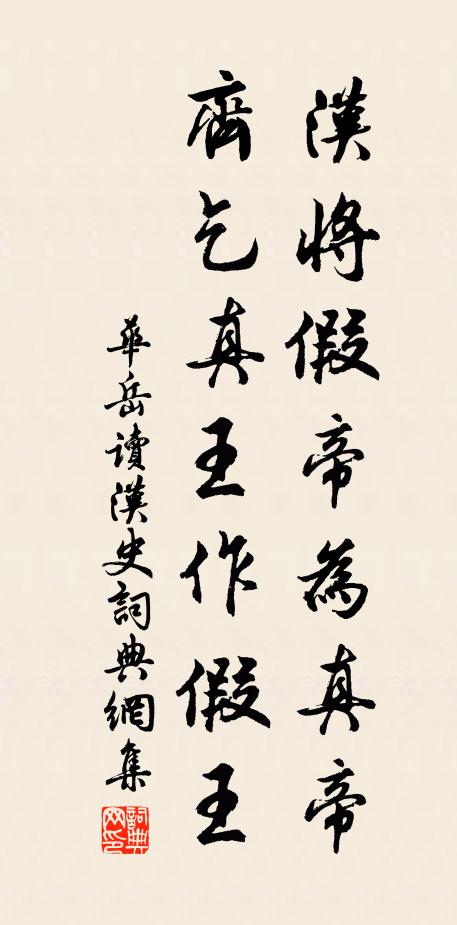 漢將假帝為真帝
齊乞真王作假王
華岳讀漢史詞典網集
詞典网印